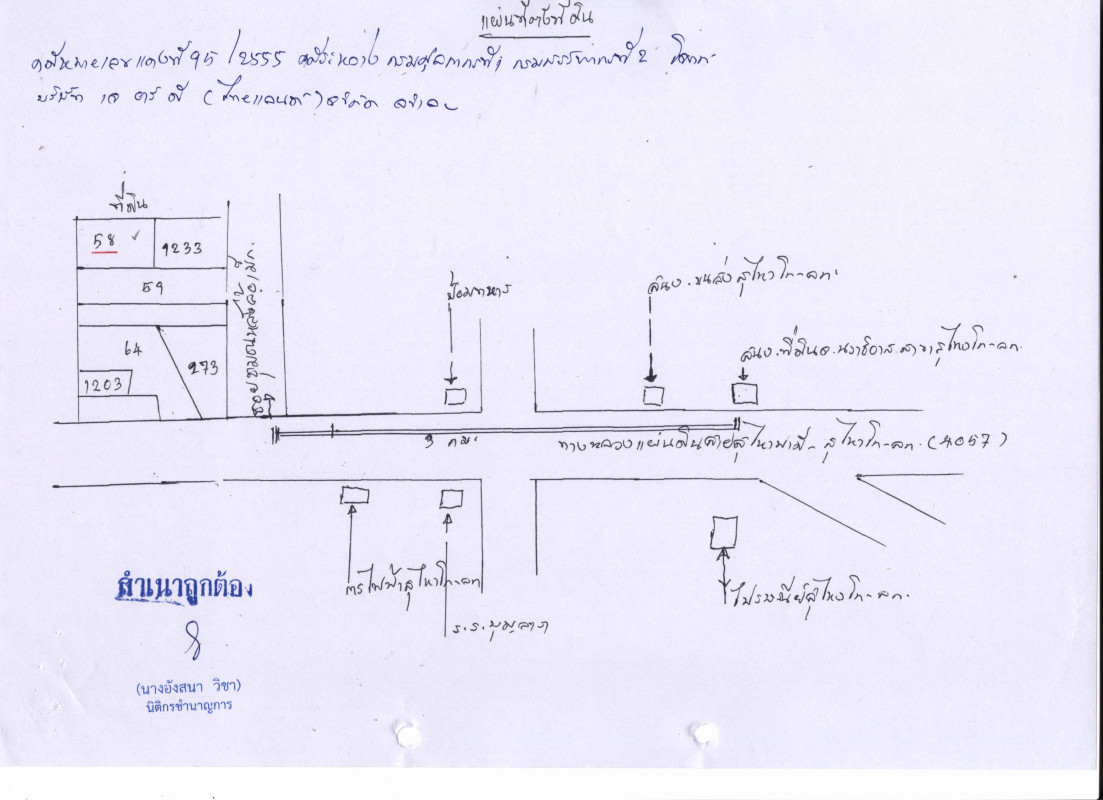 แผนที่ตั้งที่ดิน
คดีหมายเลขแดงที่ 95 /2555 คดีระหว่าง กรมศุลกากรที่ 1 กรมสรรพากรที่ 2 โจทก์
บริษัท เจ อาร์ ดี (ไทยแลนด์) จำกัด จำเลย
ที่ดิน
58 1233
59
64
273
1203
ป้อมทหาร
สนง.ขนส่งสุไหงโก-ลก
สนง.ที่ดินจ.นราธิวาส สาขาสุไหงโก-ลก
3 กม.
ทางหลวงแผ่นดินสายสุไหงปาดี-สุไหงโก-ลก (4057)
การไฟฟ้าสุไหงโก-ลก
ร.ร.
ไปรษณีย์สุไหงโก-ลก
สำเนาถูกต้อง
(นางอังสนา วิชา)
นิติกรชำนาญการ